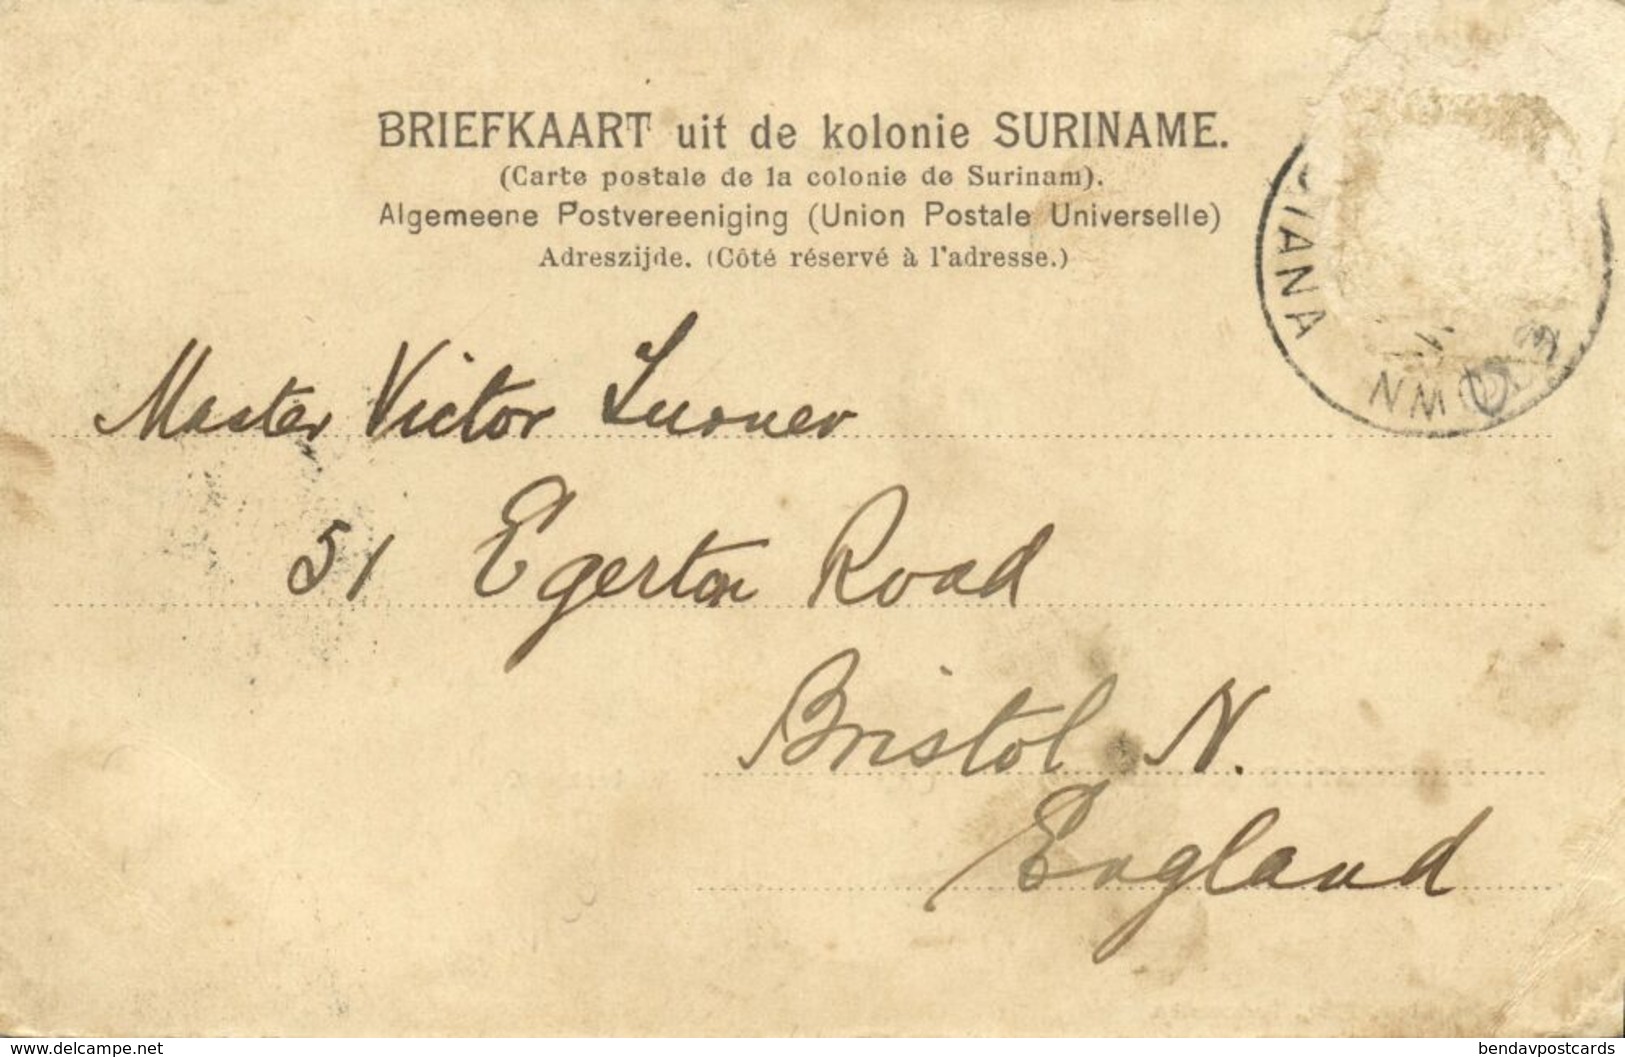 BRIEFKAART uit de kolonie SURINAME.
(Carte postale de la colonie de Surinam).
Algemeene Postvereeniging (Union Postale Universelle)
Adreszijde. (Côté réservé à l'adresse.)
IANA
Master Victor
51 Egerton Road
Bristol N.
England
www.delcampe.net
bendavpostcards